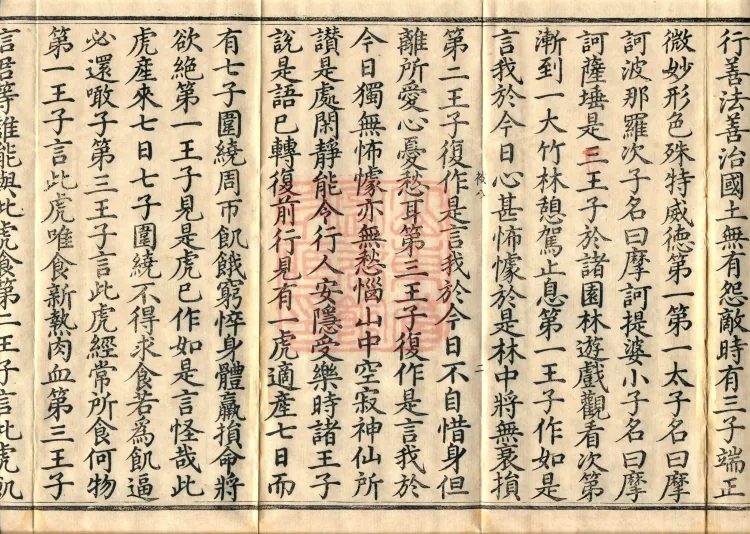 行善法善治國土無有怨敵時有三子端正
微妙形色殊特威德第一第一太子名曰摩
訶波那羅次子名曰摩訶提婆小子名曰摩
訶薩埵是三王子於諸園林遊戲觀看次第
漸到一大竹林憩駕止息第一王子作如是
言我於今日心甚怖懅於是林中將無衰損
第二王子復作是言我於今日不自惜身但
離所愛心憂愁耳第三王子復作是言我於
今日獨無怖懅亦無愁惱山中空寂神仙所
讃是處閑靜能令行人安隱受樂時諸王子
說是語已轉復前行見有一虎適產七日而
有七子圍繞周帀飢餓窮悴身體羸損命將
欲絕第一王子見是虎已作如是言怪哉此
虎產來七日七子圍繞不得求食若為飢逼
必還噉子第三王子言此虎經常所食何物
第一王子言此虎唯食新熱肉血第三王子
言君等誰能與此虎食第二王子言此虎飢